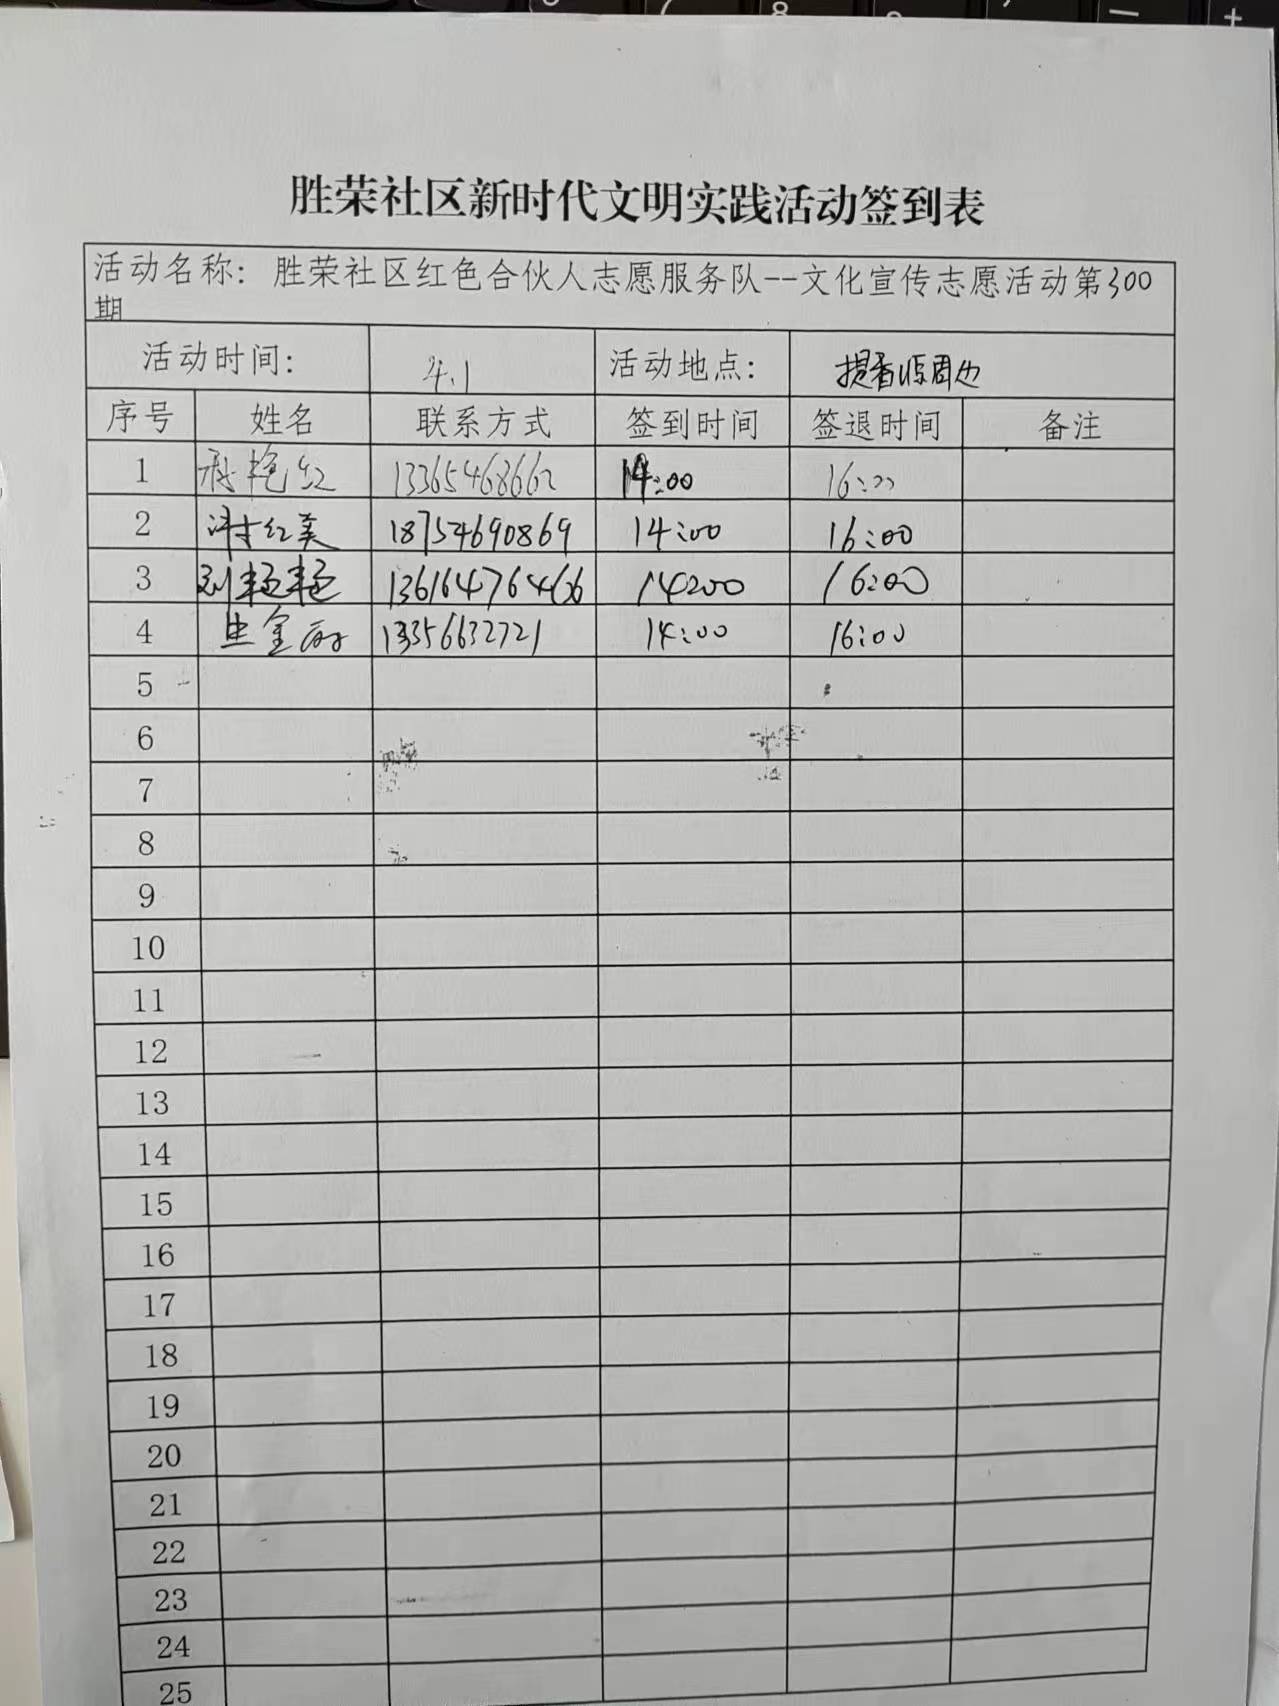 胜荣社区新时代文明实践活动签到表
活动名称：胜荣社区红色合伙人志愿服务队--文化宣传志愿活动第300
期
活动时间： 4.1 活动地点： 提香源周边
序号 姓名 联系方式 签到时间 签退时间 备注
1 艳红 13365468662 14:00 16:00
2 红美 18754690869 14:00 16:00
3 刘艳艳 14:00 16:00
4 金丽 13356632721 14:00 16:00
5
6
7
8
9
10
11
12
13
14
15
16
17
18
19
20
21
22
23
24
25